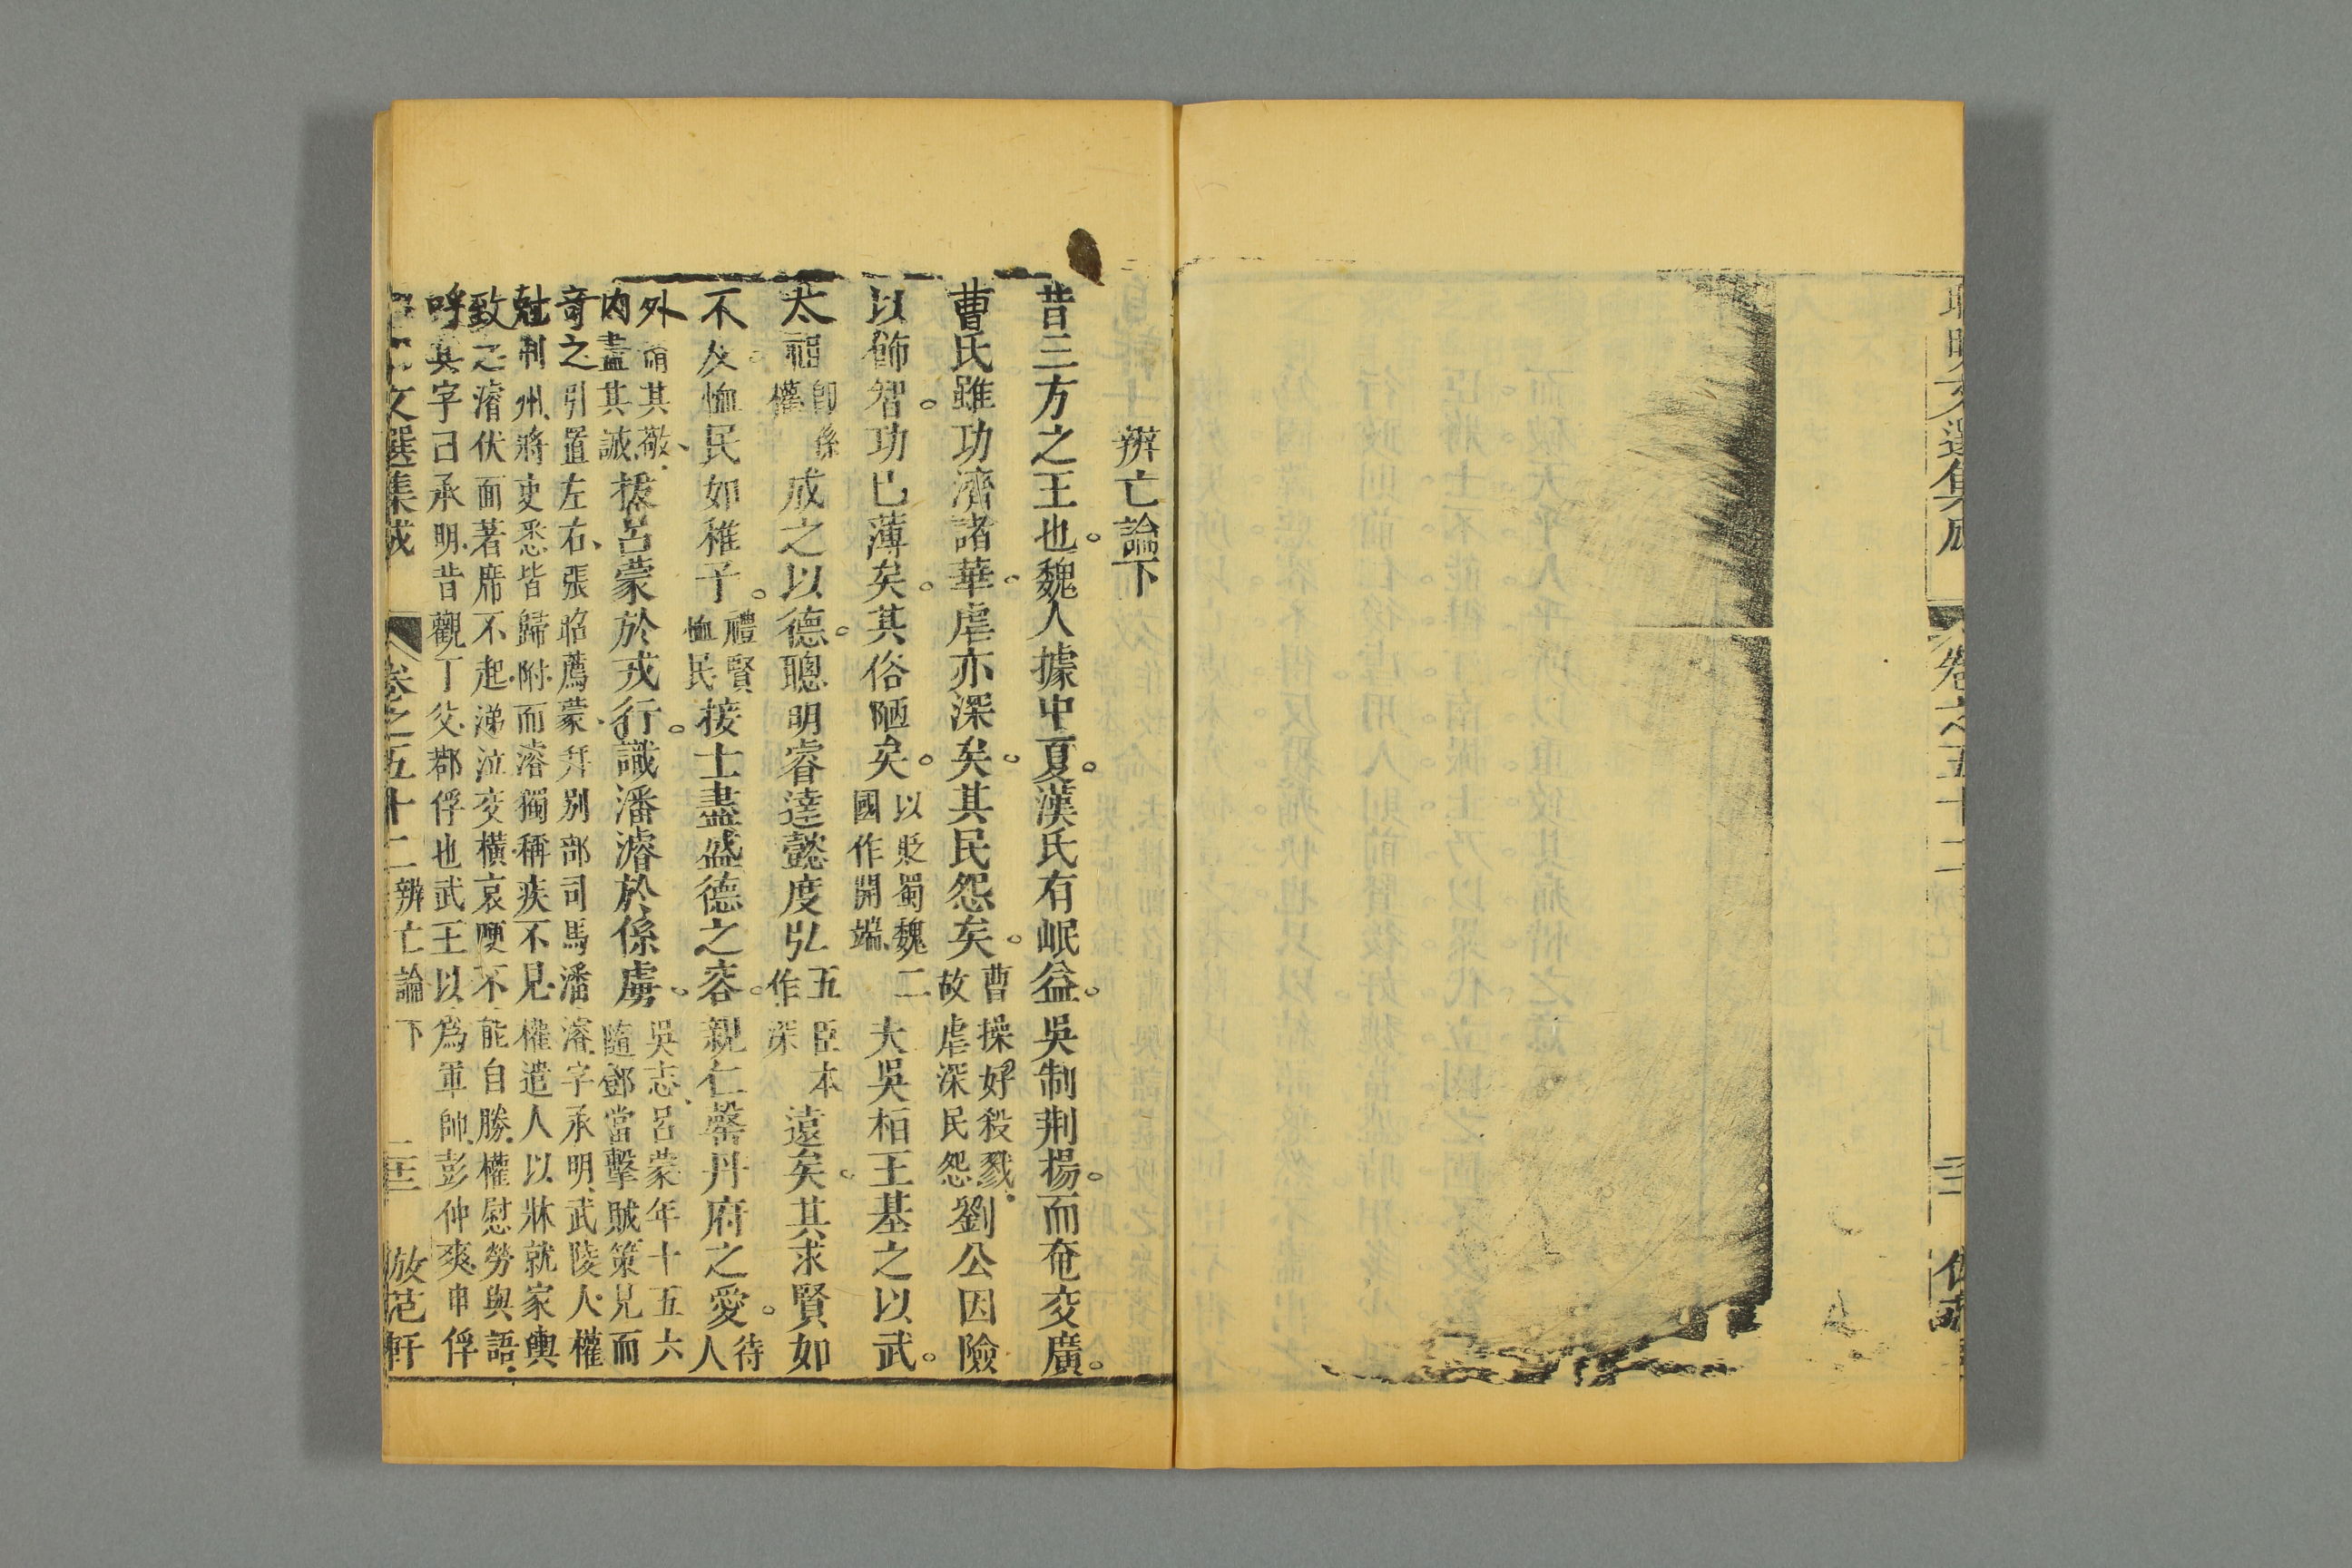 卷之五十二
辨亡論下
昔三方之王也魏人據中夏漢氏有岷益吳制荆揚而奄交廣
曹氏雖功濟諸華虐亦深矣其民怨矣曹操好殺戮故虐深民怨劉公因險
以飾智功已薄矣其俗陋矣以貶蜀魏二國作開端大吳桓王基之以武
太祖卽孫權成之以德聰明睿達懿度弘五臣本作深遠矣其求賢如
不及恤民如稚子禮賢恤民接士盡盛德之容親仁罄丹府之愛待人
外竭其敬內盡其誠拔呂蒙於戎行識潘濬於係虜吳志呂蒙年十五六隨鄧當擊賊策見而
奇之引置左右張昭薦蒙拜別部司馬潘濬字承明武陵人權
尅荆州將吏悉皆歸附而濬獨稱疾不見權遣人以牀就家輿
致之濬伏面著席不起涕泣交橫哀哽不能自勝權慰勞與語
呼其字曰承明昔觀丁父鄀俘也武王以爲軍帥彭仲爽申俘
文選集成 卷之五十二 辨亡論下 二十三 倣范軒